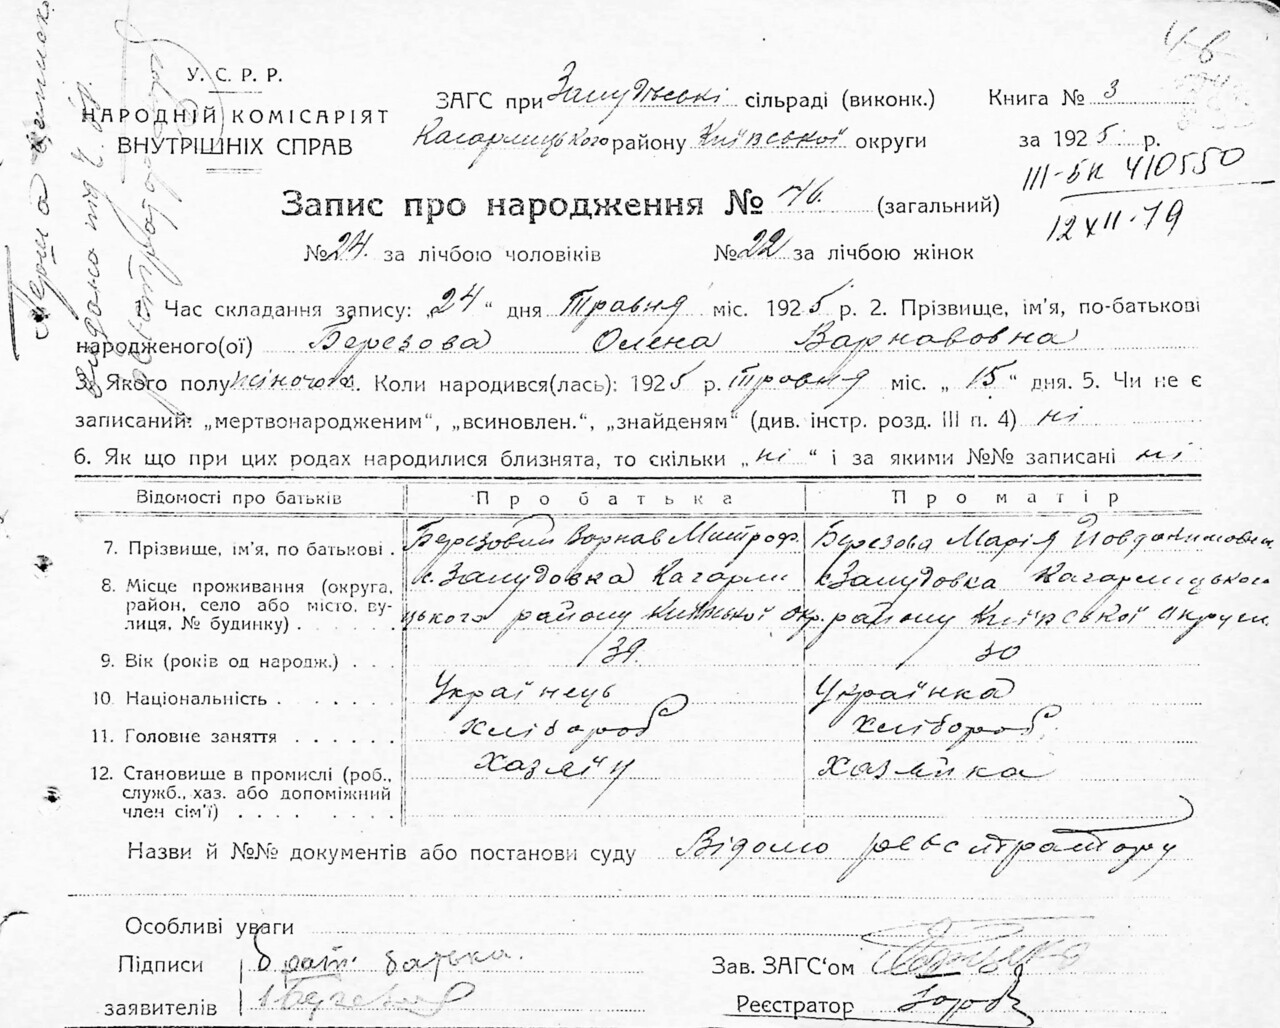 У. С. Р. Р.
НАРОДНІЙ КОМІСАРІЯТ
ВНУТРІШНІХ СПРАВ
ЗАГС при сільраді (виконк.)
Кагарлицького району Київської округи
Книга № 3
за 1925 р.
III-БК 410550
12 XII-79
Запис про народження № 46. (загальний)
№ 24. за лічбою чоловіків № 22 за лічбою жінок
1. Час складання запису: „24“ дня Травня міс. 1925 р. 2. Прізвище, ім’я, по-батькові
народженого(ої) Березова Олена Варнавовна
3. Якого полу жіночого 4. Коли народився(лась): 1925 р. Травня міс. „15“ дня. 5. Чи не є
записаний: „мертвонародженим“, „всиновлен.“, „знайденям“ (див. інстр. розд. III п. 4) ні
6. Як що при цих родах народилися близнята, то скільки „ні“ і за якими №№ записані ні
Відомості про батьків Про батька Про матір
7. Прізвище, ім’я, по батькові . Березовий Варнав Митроф. Березова Марія
8. Місце проживання (округа, с. Залудовка Кагарли с. Залудовка Кагарлицького
район, село або місто, ву-
лиця, № будинку) . . . . . цького району Київської окр. району Київської округи.
9. Вік (років од народж.) . . . 39. 30
10. Національність . . . . . . Українець Українка
11. Головне заняття . . . . . . Хлібороб Хлібороб.
12. Становище в промислі (роб., Хазяїн Хазяйка
служб., хаз. або допоміжний
член сім’ї) . . . . . . . .
Назви й №№ документів або постанови суду Відомо реєстратору
Особливі уваги
Підписи брат батька.
заявителів
Зав. ЗАГС‘ом
Реєстратор